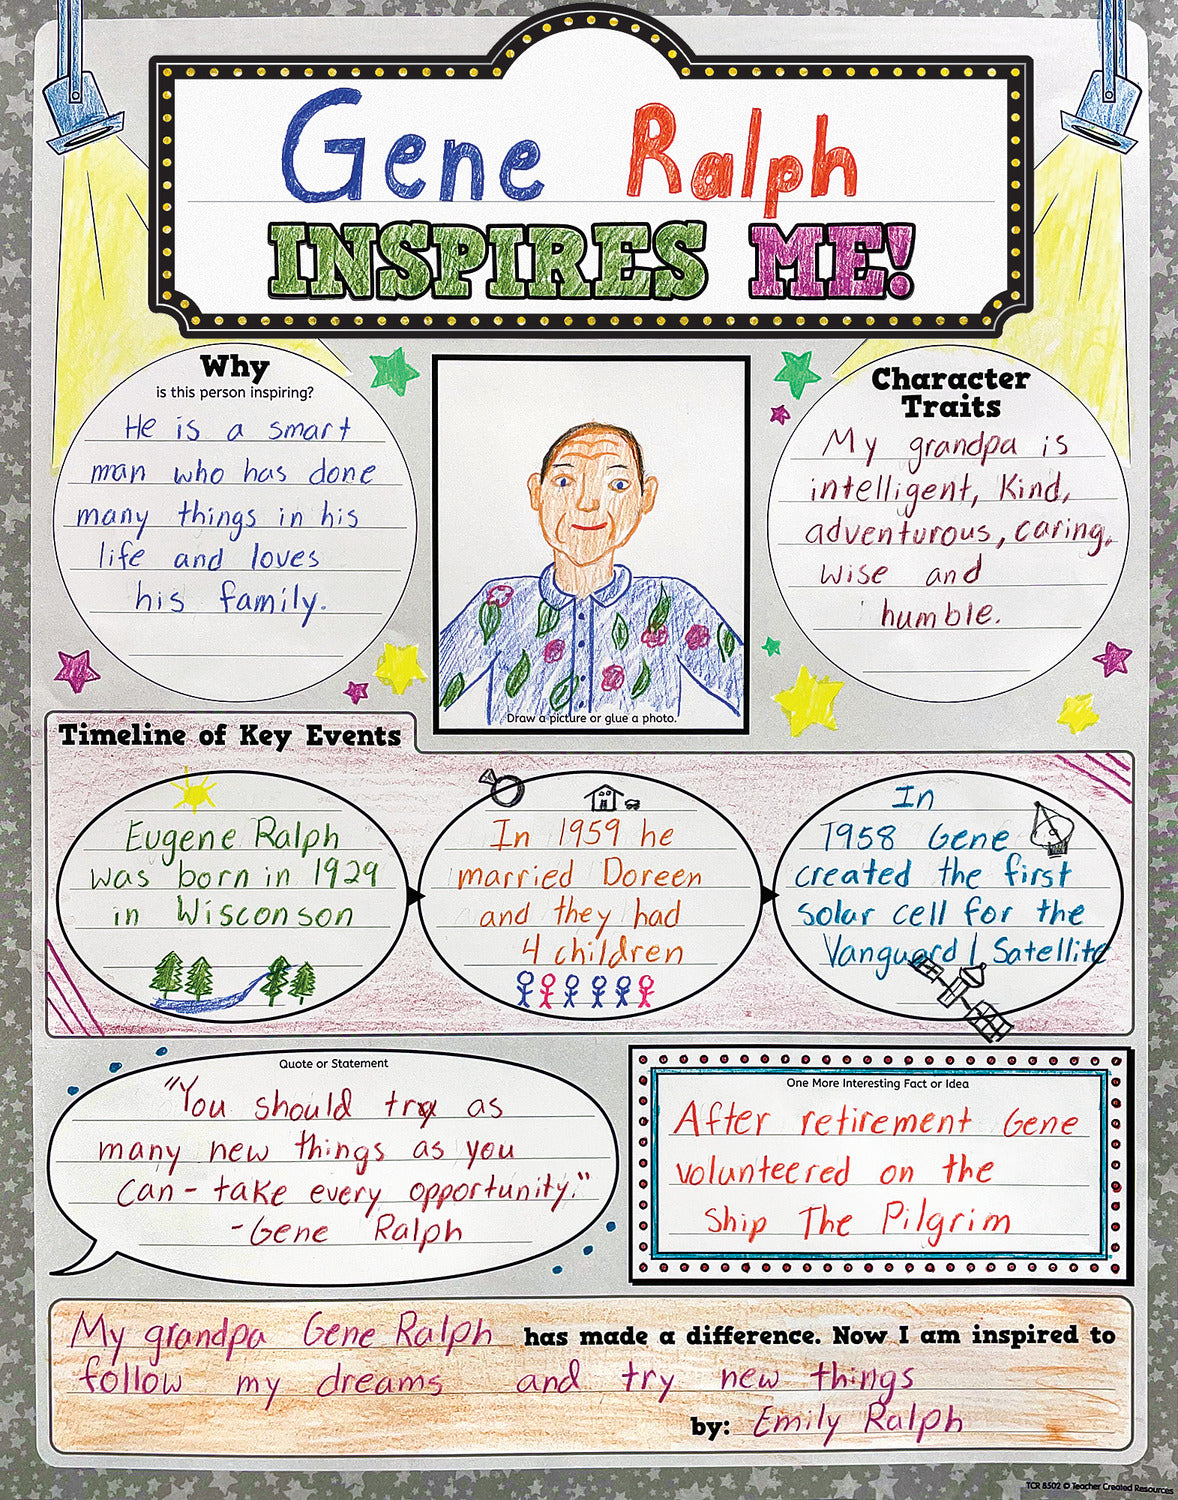 Gene Ralph
INSPIRES ME!
Why
is this person inspiring?
He is a smart
man who has done
many things in his
life and loves
his family.
Draw a picture or glue a photo.
Character
Traits
My grandpa is
intelligent, Kind,
adventurous, caring,
wise and
humble.
Timeline of Key Events
Eugene Ralph
was born in 1929
in Wisconson
In 1959 he
married Doreen
and they had
4 children
In
1958 Gene
created the first
solar cell for the
Vanguard 1 Satellite
Quote or Statement
"You should try as
many new things as you
can - take every opportunity."
- Gene Ralph
One More Interesting Fact or Idea
After retirement Gene
volunteered on the
Ship The Pilgrim
My grandpa Gene Ralph has made a difference. Now I am inspired to
follow my dreams and try new things
by: Emily Ralph
TCR 8502 © Teacher Created Resources